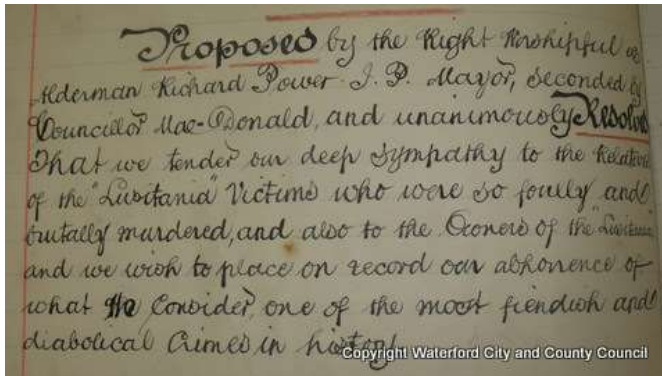 Proposed by the Right Worshipful
Alderman Richard Power J. P. Mayor, seconded by
Councillor Mac-Donald, and unanimously Resolved
That we tender our deep sympathy to the Relatives
of the "Lusitania" Victims who were so foully and
brutally murdered, and also to the Owners of the "Lusitania"
and we wish to place on record our abhorrence of
what we consider, one of the most fiendish and
diabolical Crimes in history
Copyright Waterford City and County Council